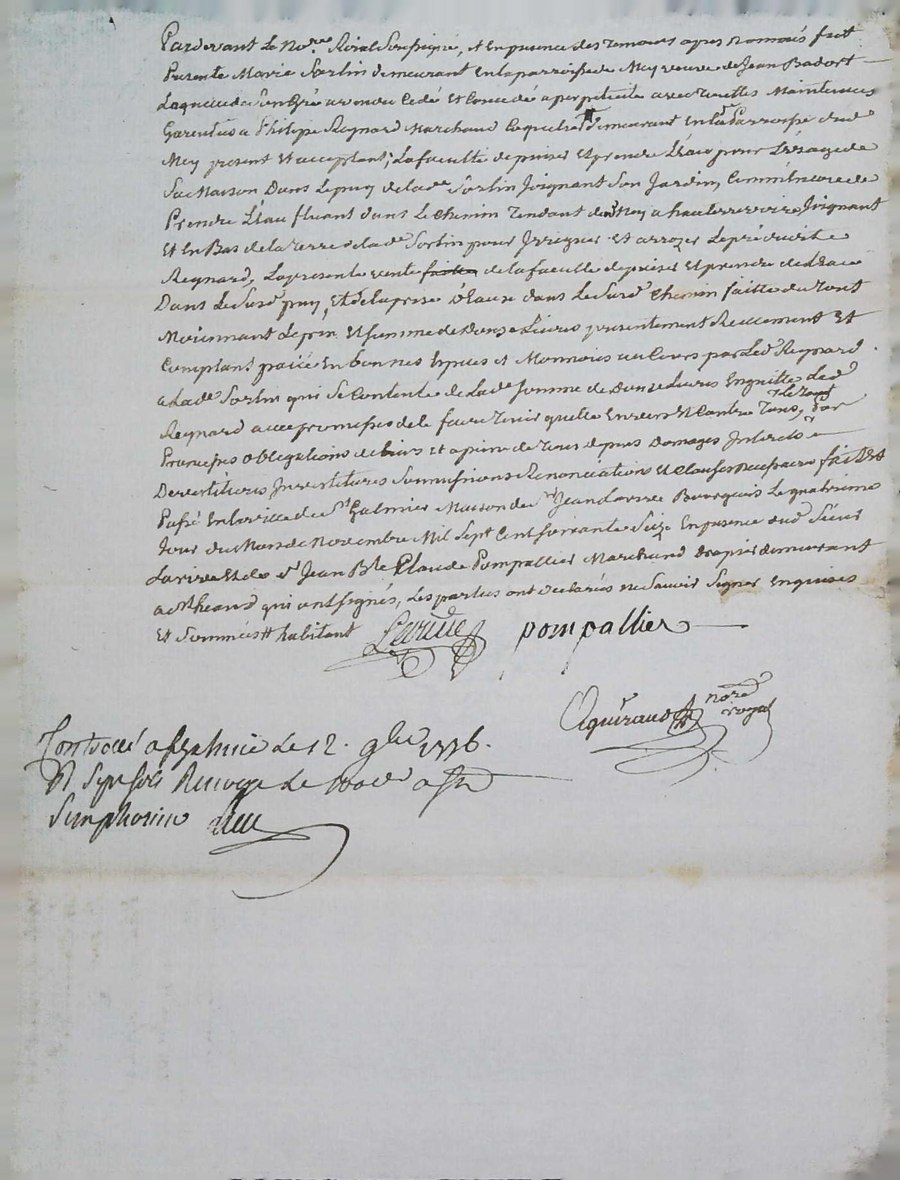 Pardevant Le no.re Roial Soussigné, et En presence des temoins apres nommés fait
Presente Marie Sorlin demeurant En la parroisse de Mey veuve de Jean Badort
Laquelle de Son Gré a vendu Cedé Et Concedé a perpetuité avec touttes Maintenues
Garenties a Philipe Reynard Marchand demeurant En la d. Parroisse dud
Mey present Et acceptant; La faculté de puiser Et prendre L'Eau pour L'usage de
Sa Maison Dans Le puy de la d.e Sorlin Joignant Son Jardin, Comme Encore de
Prendre L'Eau fluant dans Le Chemin Tendant de Mey a hauterivoire Joignant
Et En Bas de la terre de la d.e Sorlin pour Jrriguer Et arrozer Le pré dudit
Reynard, La presente vente faitte de la faculté de puiser Et prendre de L'Eau
Dans Le Susd. puy, Et de la prise d'Eau dans Le Susd. Chemin faitte du tout
Moiennant Le prix Et Somme de Douze Livres presentement Reellement Et
Comptant paiée En bonnes Especes et Monnoies au Cours par Led. Reynard
a La d.e Sorlin qui Se Contente de La d.e Somme de Douze Livres En quitte Led.
Reynard avec promesses de le faire tenir quitte Envers Et Contre Tous, Le tout par
Promesses Obligations de biens et a peine de tous depens Domages Jnterets
Devestitures Jnvestitures Soumissions Renonciations Et Clauses necessaires fait Et
Passé En la ville de St. Galmier Maison de Sr. Jean Larive Bourgeois Le quatrieme
Jour du Mois de Novembre Mil Sept Cent Soixante Seize En presence dud. Sieur
Larive Et de Sr. Jean B.te Claude Pompallier Marchand Drapier demeurant
qui ont signés, Les parties ont declarés ne Savoir Signer Enquises
Et Sommées # habitant
Larive pompallier
Aguiraud no.re royal
Controllé a St galmier Le 12. 9bre 1776.
R Sept sols Renvoyé Le a St
Simphorien